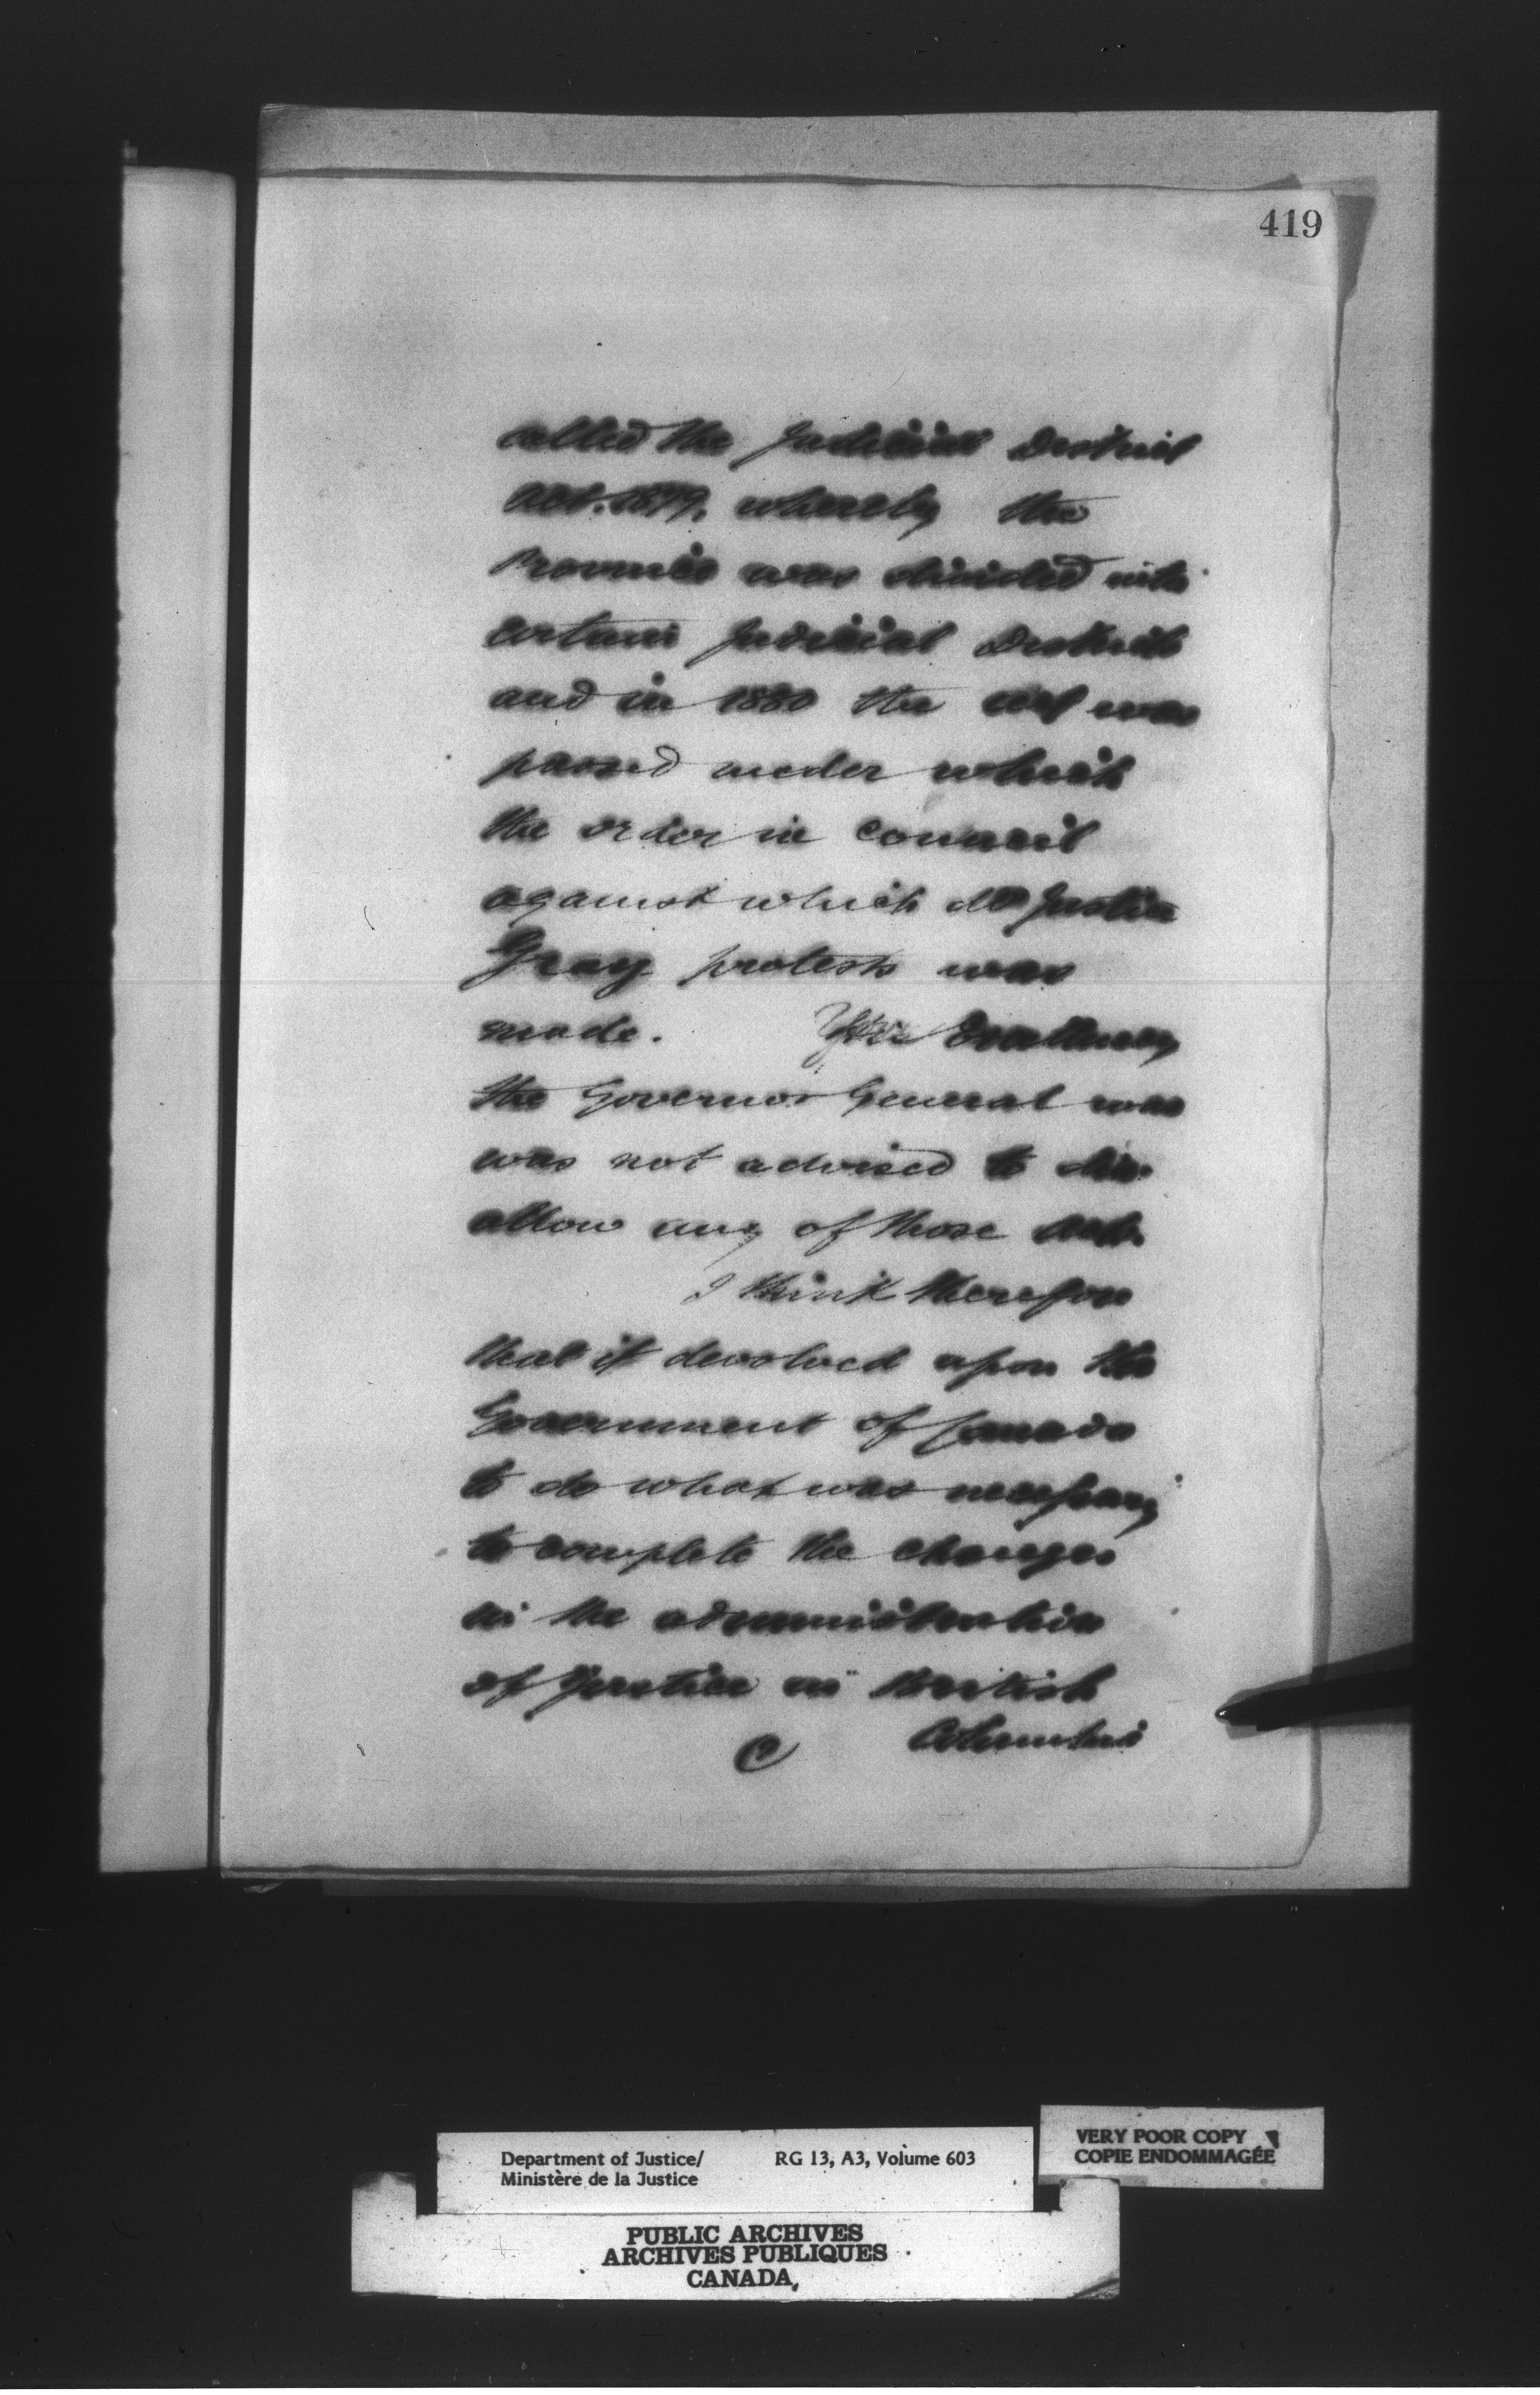 419
called the Judicial District
Act. 1879, whereby the
Province was divided into
certain Judicial Districts
and in 1880 the act was
passed under which
the order in Council
against which Mr Justice
Gray protests was
made. Your Excellency
the Governor General was
was not advised to dis-
allow any of those acts.
I think therefore
that it devolved upon the
Government of Canada
to do what was necessary
to complete the changes
in the administration
of Justice in British
Columbia
Department of Justice/ RG 13, A3, Volume 603
Ministère de la Justice
VERY POOR COPY
COPIE ENDOMMAGÉE
PUBLIC ARCHIVES
ARCHIVES PUBLIQUES
CANADA